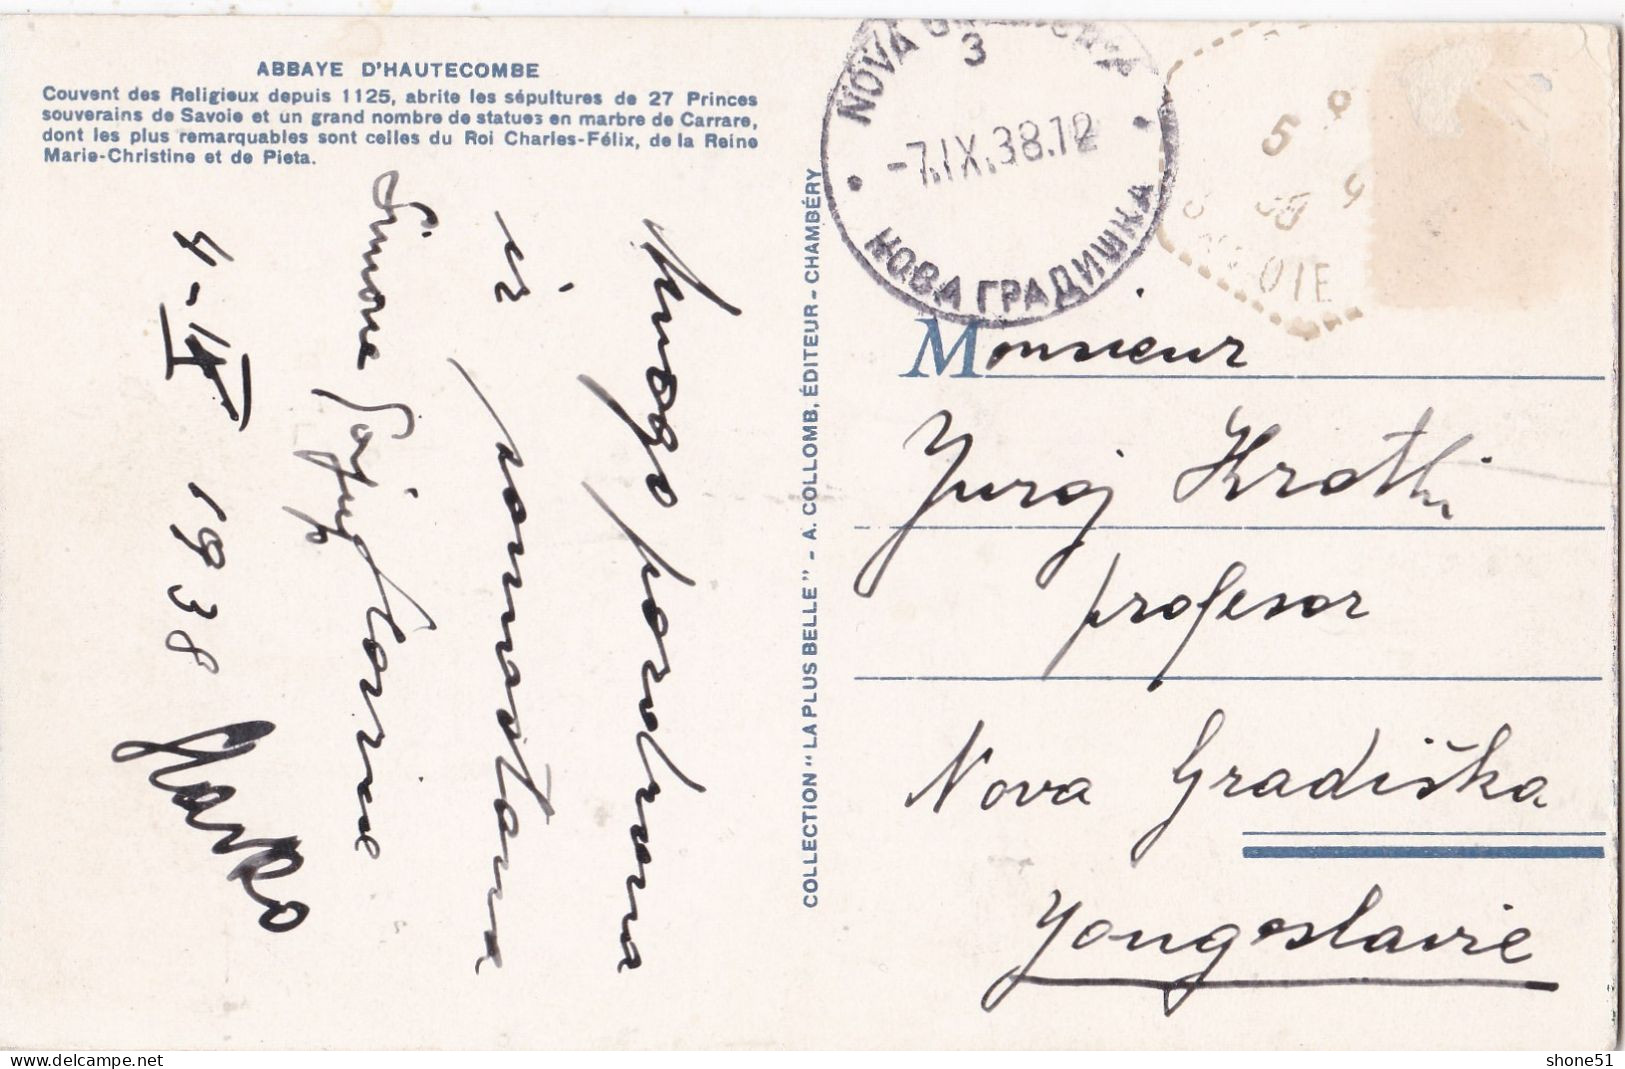 ABBAYE D'HAUTECOMBE
Couvent des Religieux depuis 1125, abrite les sépultures de 27 Princes
souverains de Savoie et un grand nombre de statues en marbre de Carrare,
dont les plus remarquables sont celles du Roi Charles-Félix, de la Reine
Marie-Christine et de Pieta.
Mnogo pozdrava
iz
Simone
4-IX 1938
Marko
COLLECTION "LA PLUS BELLE" - A. COLLOMB, ÉDITEUR - CHAMBÉRY
NOVA GRADIŠKA
3
-7.IX.38.12
НОВА ГРАДИШКА
5
OIE
Monsieur
Juraj
profesor
Nova Gradiška
Yougoslavie
delcampe.net
shone51